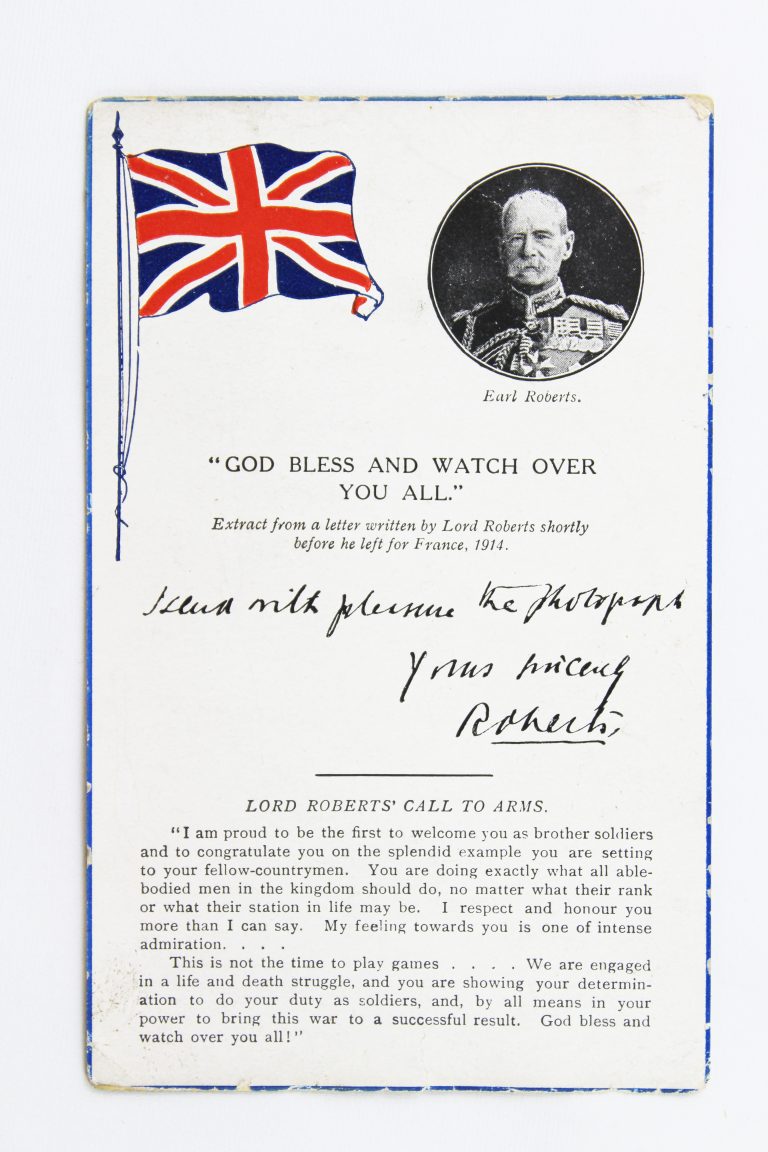 Earl Roberts.
"GOD BLESS AND WATCH OVER
YOU ALL."
Extract from a letter written by Lord Roberts shortly
before he left for France, 1914.
I send with pleasure the photograph
Yours sincerely
Roberts,
LORD ROBERTS' CALL TO ARMS.
"I am proud to be the first to welcome you as brother soldiers
and to congratulate you on the splendid example you are setting
to your fellow-countrymen. You are doing exactly what all able-
bodied men in the kingdom should do, no matter what their rank
or what their station in life may be. I respect and honour you
more than I can say. My feeling towards you is one of intense
admiration. . . .
This is not the time to play games . . . . We are engaged
in a life and death struggle, and you are showing your determin-
ation to do your duty as soldiers, and, by all means in your
power to bring this war to a successful result. God bless and
watch over you all!"